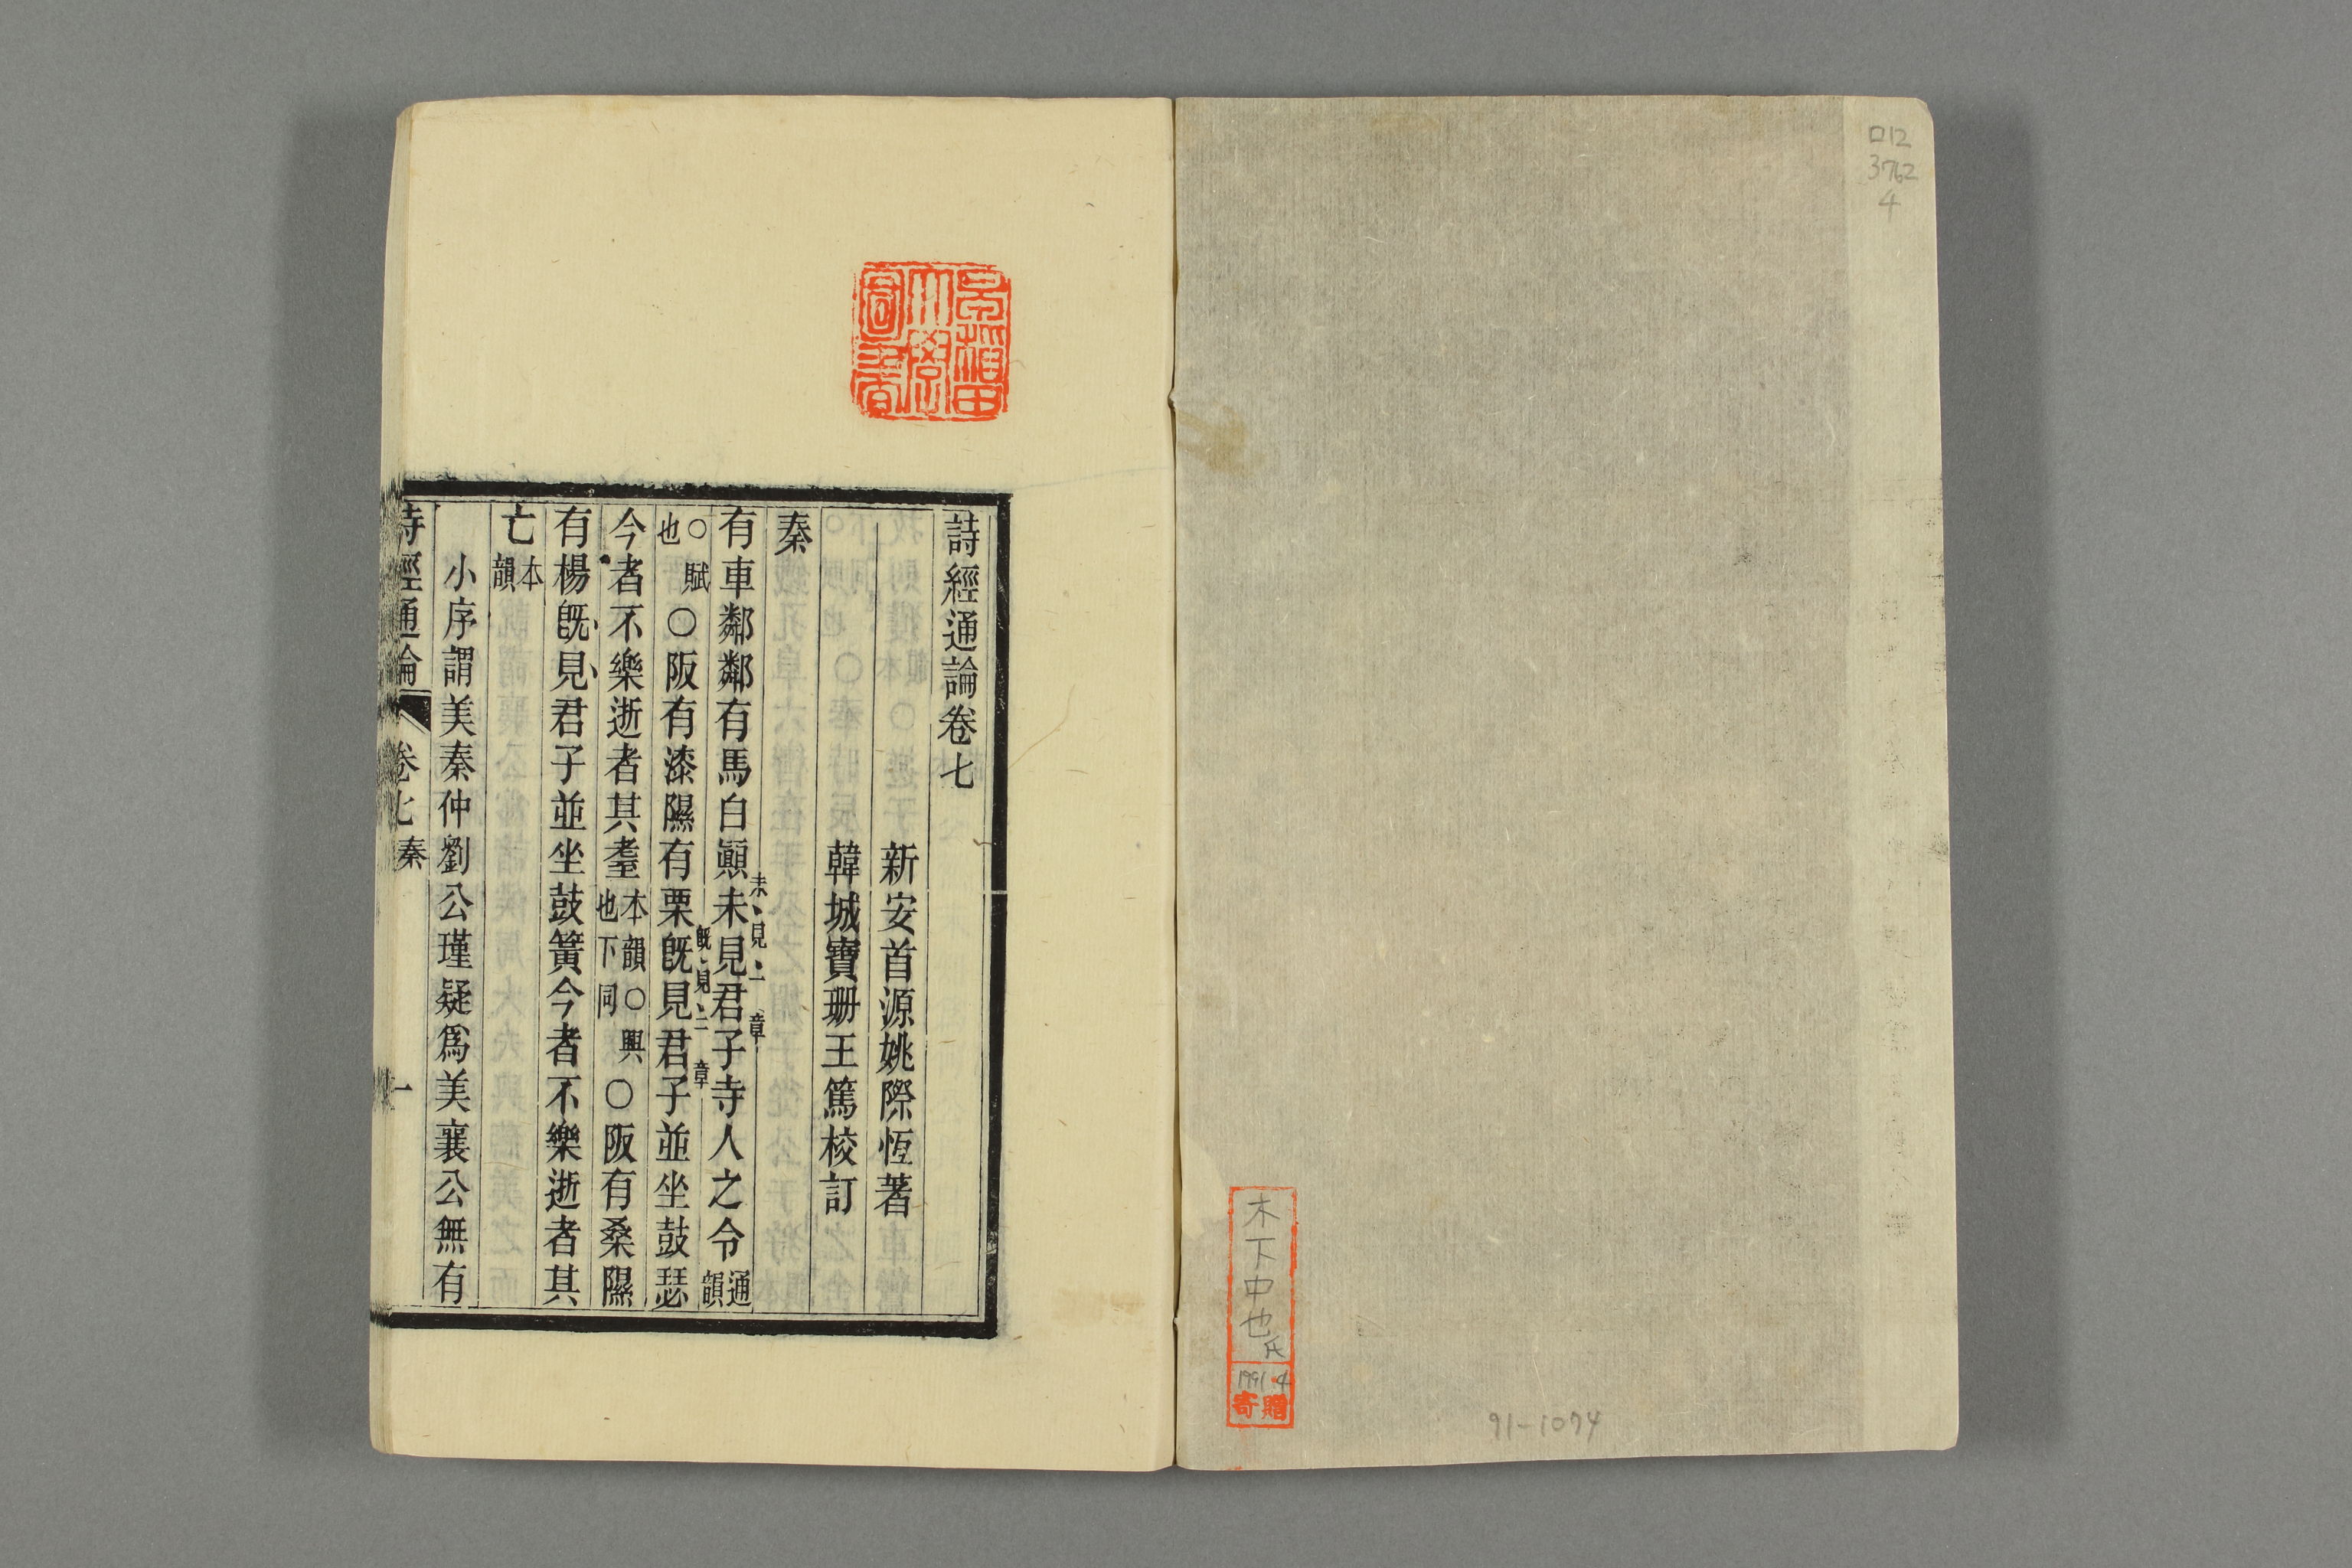 ロ12
3762
4
木下中也氏
1991.4
寄贈
91-1074
早稲田
大學
圖書
詩經通論卷七
新安首源姚際恆著
韓城寶珊王篤校訂
秦
有車鄰鄰有馬白顚未見君子寺人之令通韻
未見一章
○賦也○阪有漆隰有栗旣見君子並坐鼓瑟
旣見二章
今者不樂逝者其耋本韻○興也下同○阪有桑隰
有楊旣見君子並坐鼓簧今者不樂逝者其
亡本韻
小序謂美秦仲劉公瑾疑爲美襄公無有
詩經通論 卷七 秦 一